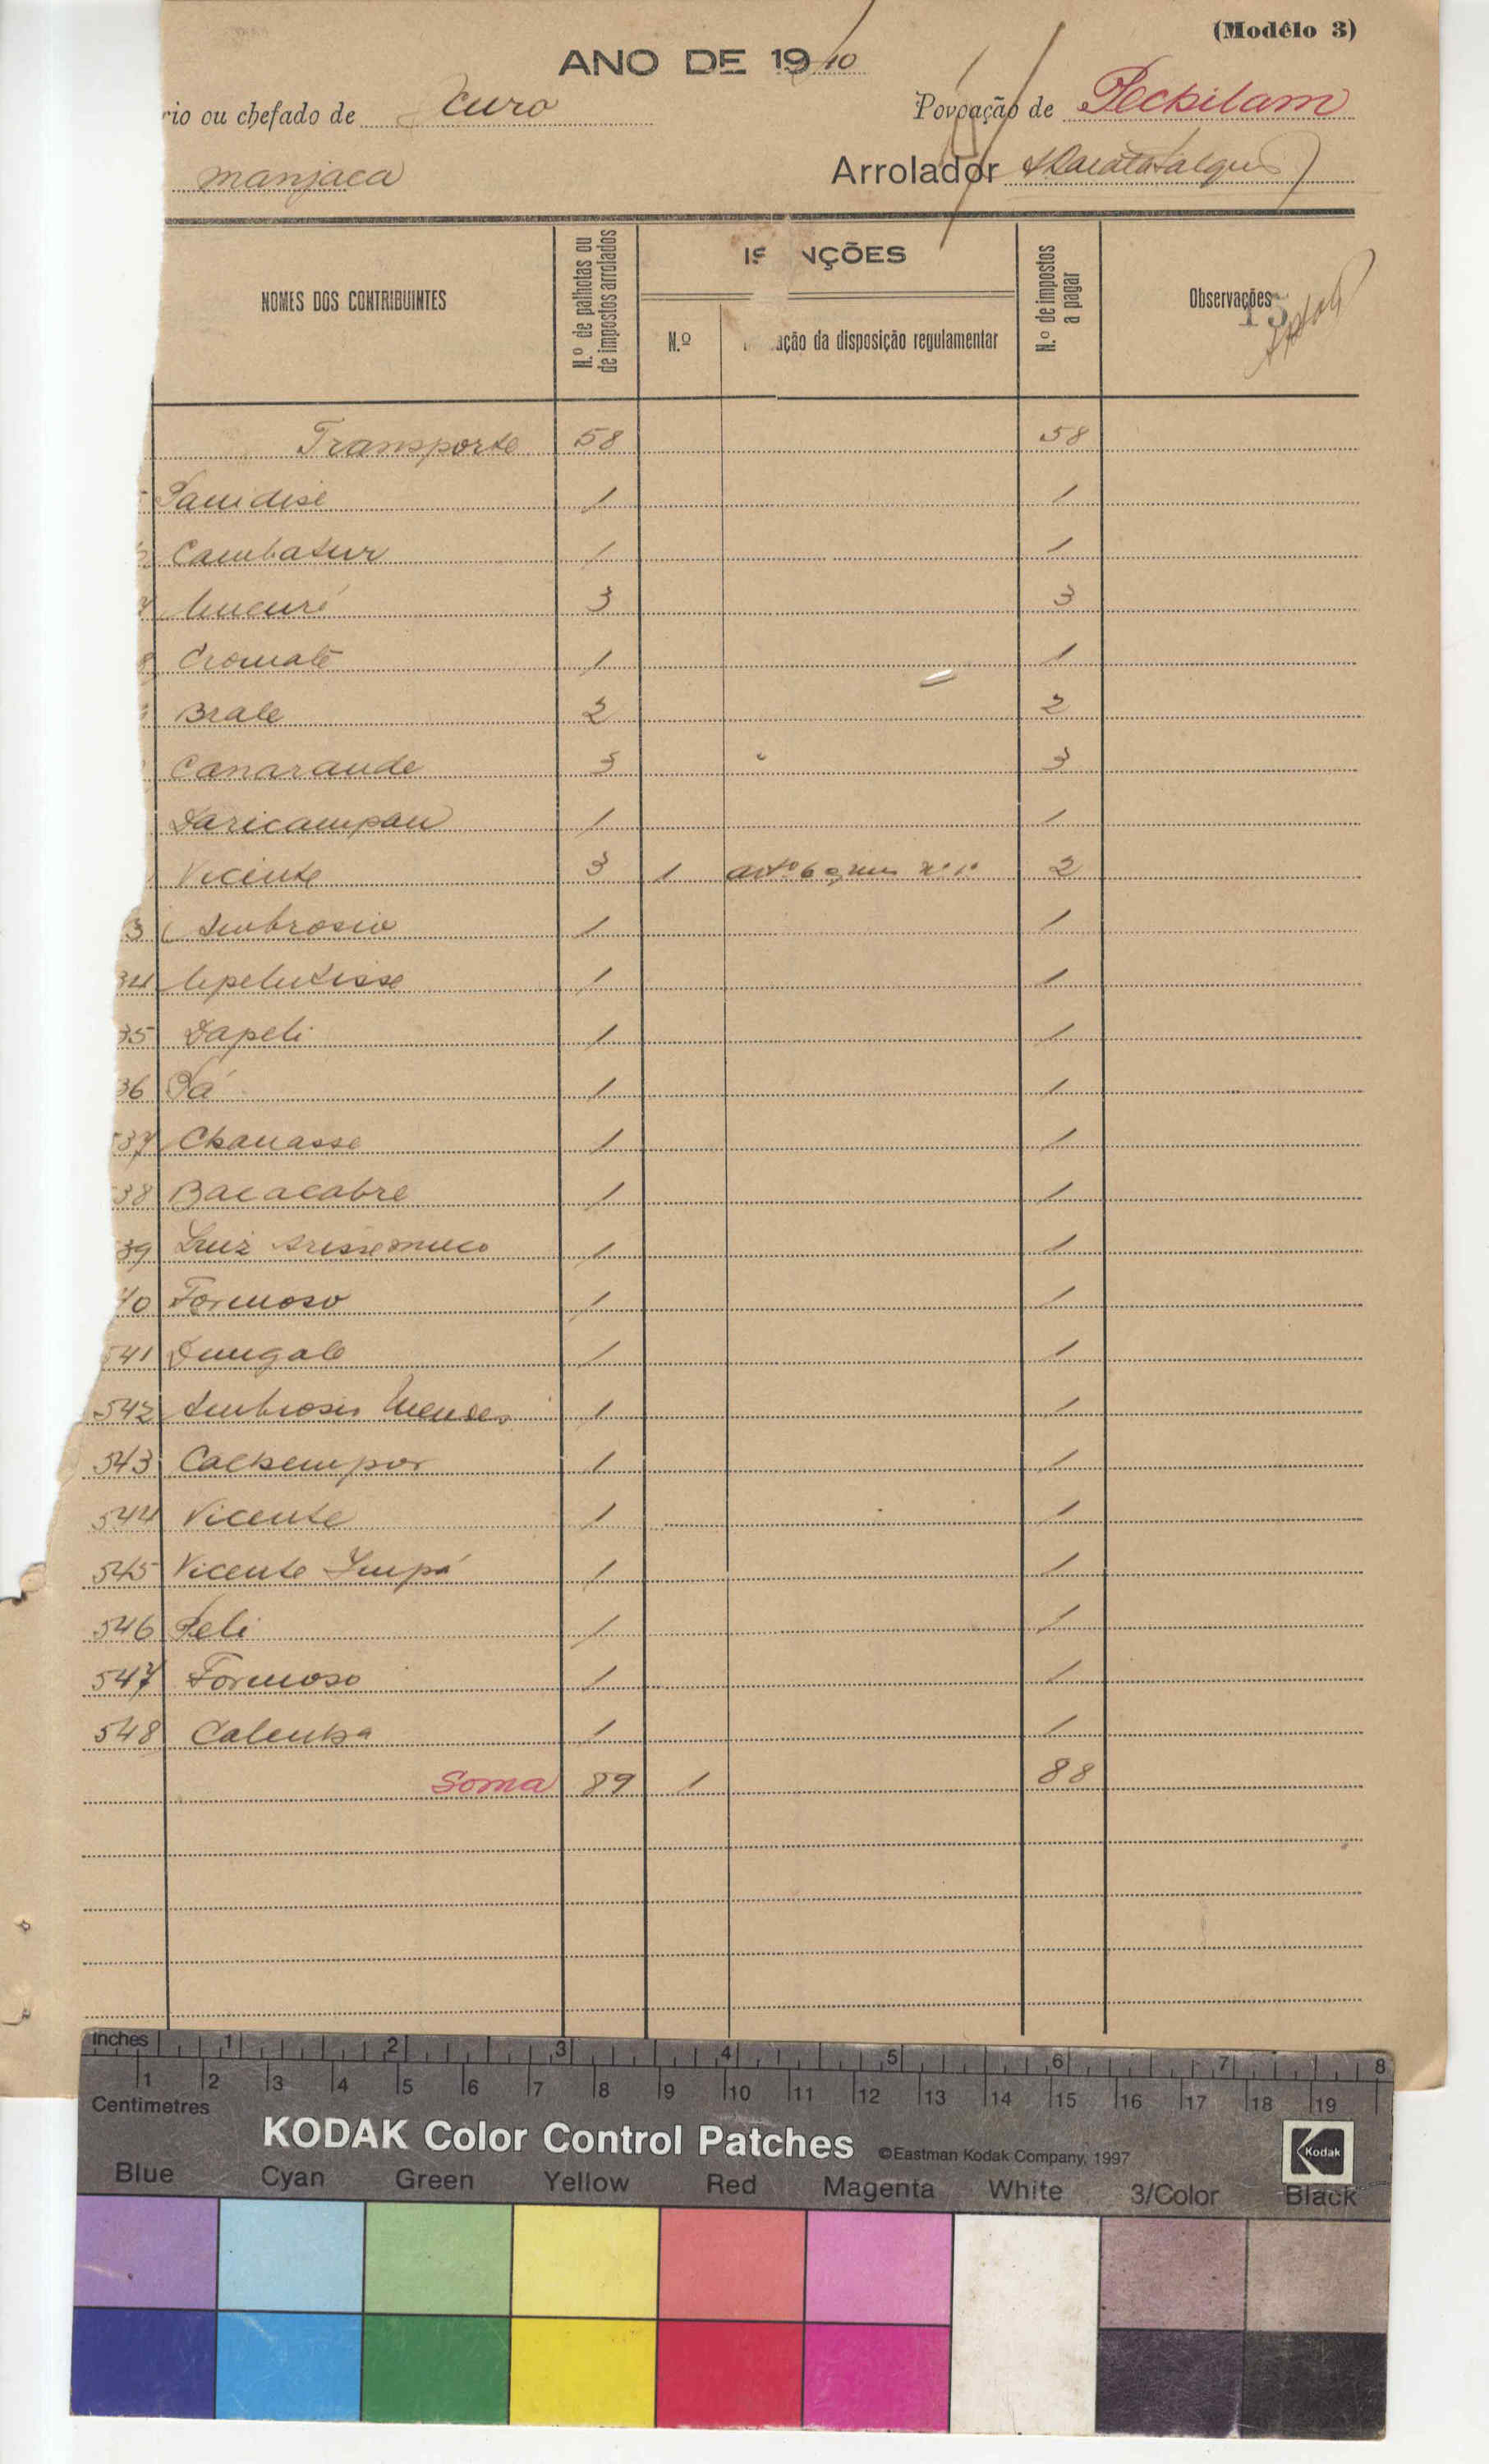 (Modêlo 3)
ANO DE 1940
rio ou chefado de Curo Povoação de Pechilam
manjaca Arrolador
NOMES DOS CONTRIBUINTES N.º de palhotas ou de impostos arrolados IS NÇÕES N.º de impostos a pagar Observações
N.º ação da disposição regulamentar
15
Transporte 58 58
1 1
Cambatur 1 1
7 3 3
8 Cromate 1 1
Brale 2 2
Canarande 3 3
Daricampan 1 1
Vicente 3 1 artº 6 nº 1º 2
3 Ambrosio 1 1
34 1 1
35 Dapeli 1 1
36 Pá 1 1
537 Chanasse 1 1
38 Bacacabre 1 1
39 Luiz 1 1
40 Formoso 1 1
541 Dungale 1 1
542 Ambrosio Mendes 1 1
543 Cachempor 1 1
544 Vicente 1 1
545 Vicente Impá 1 1
546 Peli 1 1
547 Formoso 1 1
548 Calenha 1 1
Soma 89 1 88
Inches 1 2 3 4 5 6 7 8
1 2 3 4 5 6 7 8 9 10 11 12 13 14 15 16 17 18 19
Centimetres
KODAK Color Control Patches ©Eastman Kodak Company, 1997 Kodak
Blue Cyan Green Yellow Red Magenta White 3/Color Black